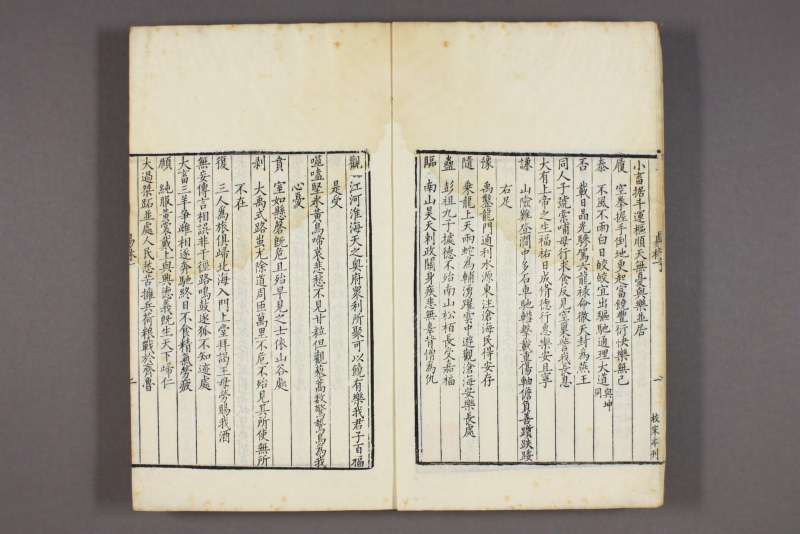 小畜 据斗運樞順天無憂與樂並居
履 空拳握手倒地更起富饒豐衍快樂無已
泰 不風不雨白日皎皎宜出驅馳通理大道與坤同
否 載日晶光驂駕六龍祿命徹天封為燕王
同人 子號索哺母行求食反見空巢訾我長息
大有 上帝之生福祐日成修德行惠樂安且寧
謙 山險難登澗中多石車馳轊擊載重傷軸擔負善躓跌踒
右足
豫 禹鑿龍門通利水源東注滄海民得安存
隨 乘龍上天兩蛇為輔湧躍雲中遊觀滄海安樂長處
蠱 彭祖九子據德不殆南山松栢長受嘉福
臨 南山昊天刺政關身疾悲無辜背憎為仇
一
校宋本刊
觀 江河淮海天之奧府眾利所聚可以饒有樂我君子百福
是受
噬嗑 堅冰黃鳥啼哀悲愁不見甘粒但觀藜蒿數驚鷙鳥為我
心憂
賁 室如懸磬既危且殆早見之士依山谷處
剥 大禹式路蚩尤除道周匝萬里不危不殆見其所使無所
不在
復 三人為旅俱歸北海入門上堂拜謁王母勞賜我酒
無妄 傳言相誤非干徑路鳴鼓逐狐不知迹處
大畜 三羊爭雌相逐奔馳終日不食精氣勞疲
頤 純服黃裳戴上與興德義既生天下歸仁
大過 桀跖並處人民愁苦擁兵荷粮戰於齊魯